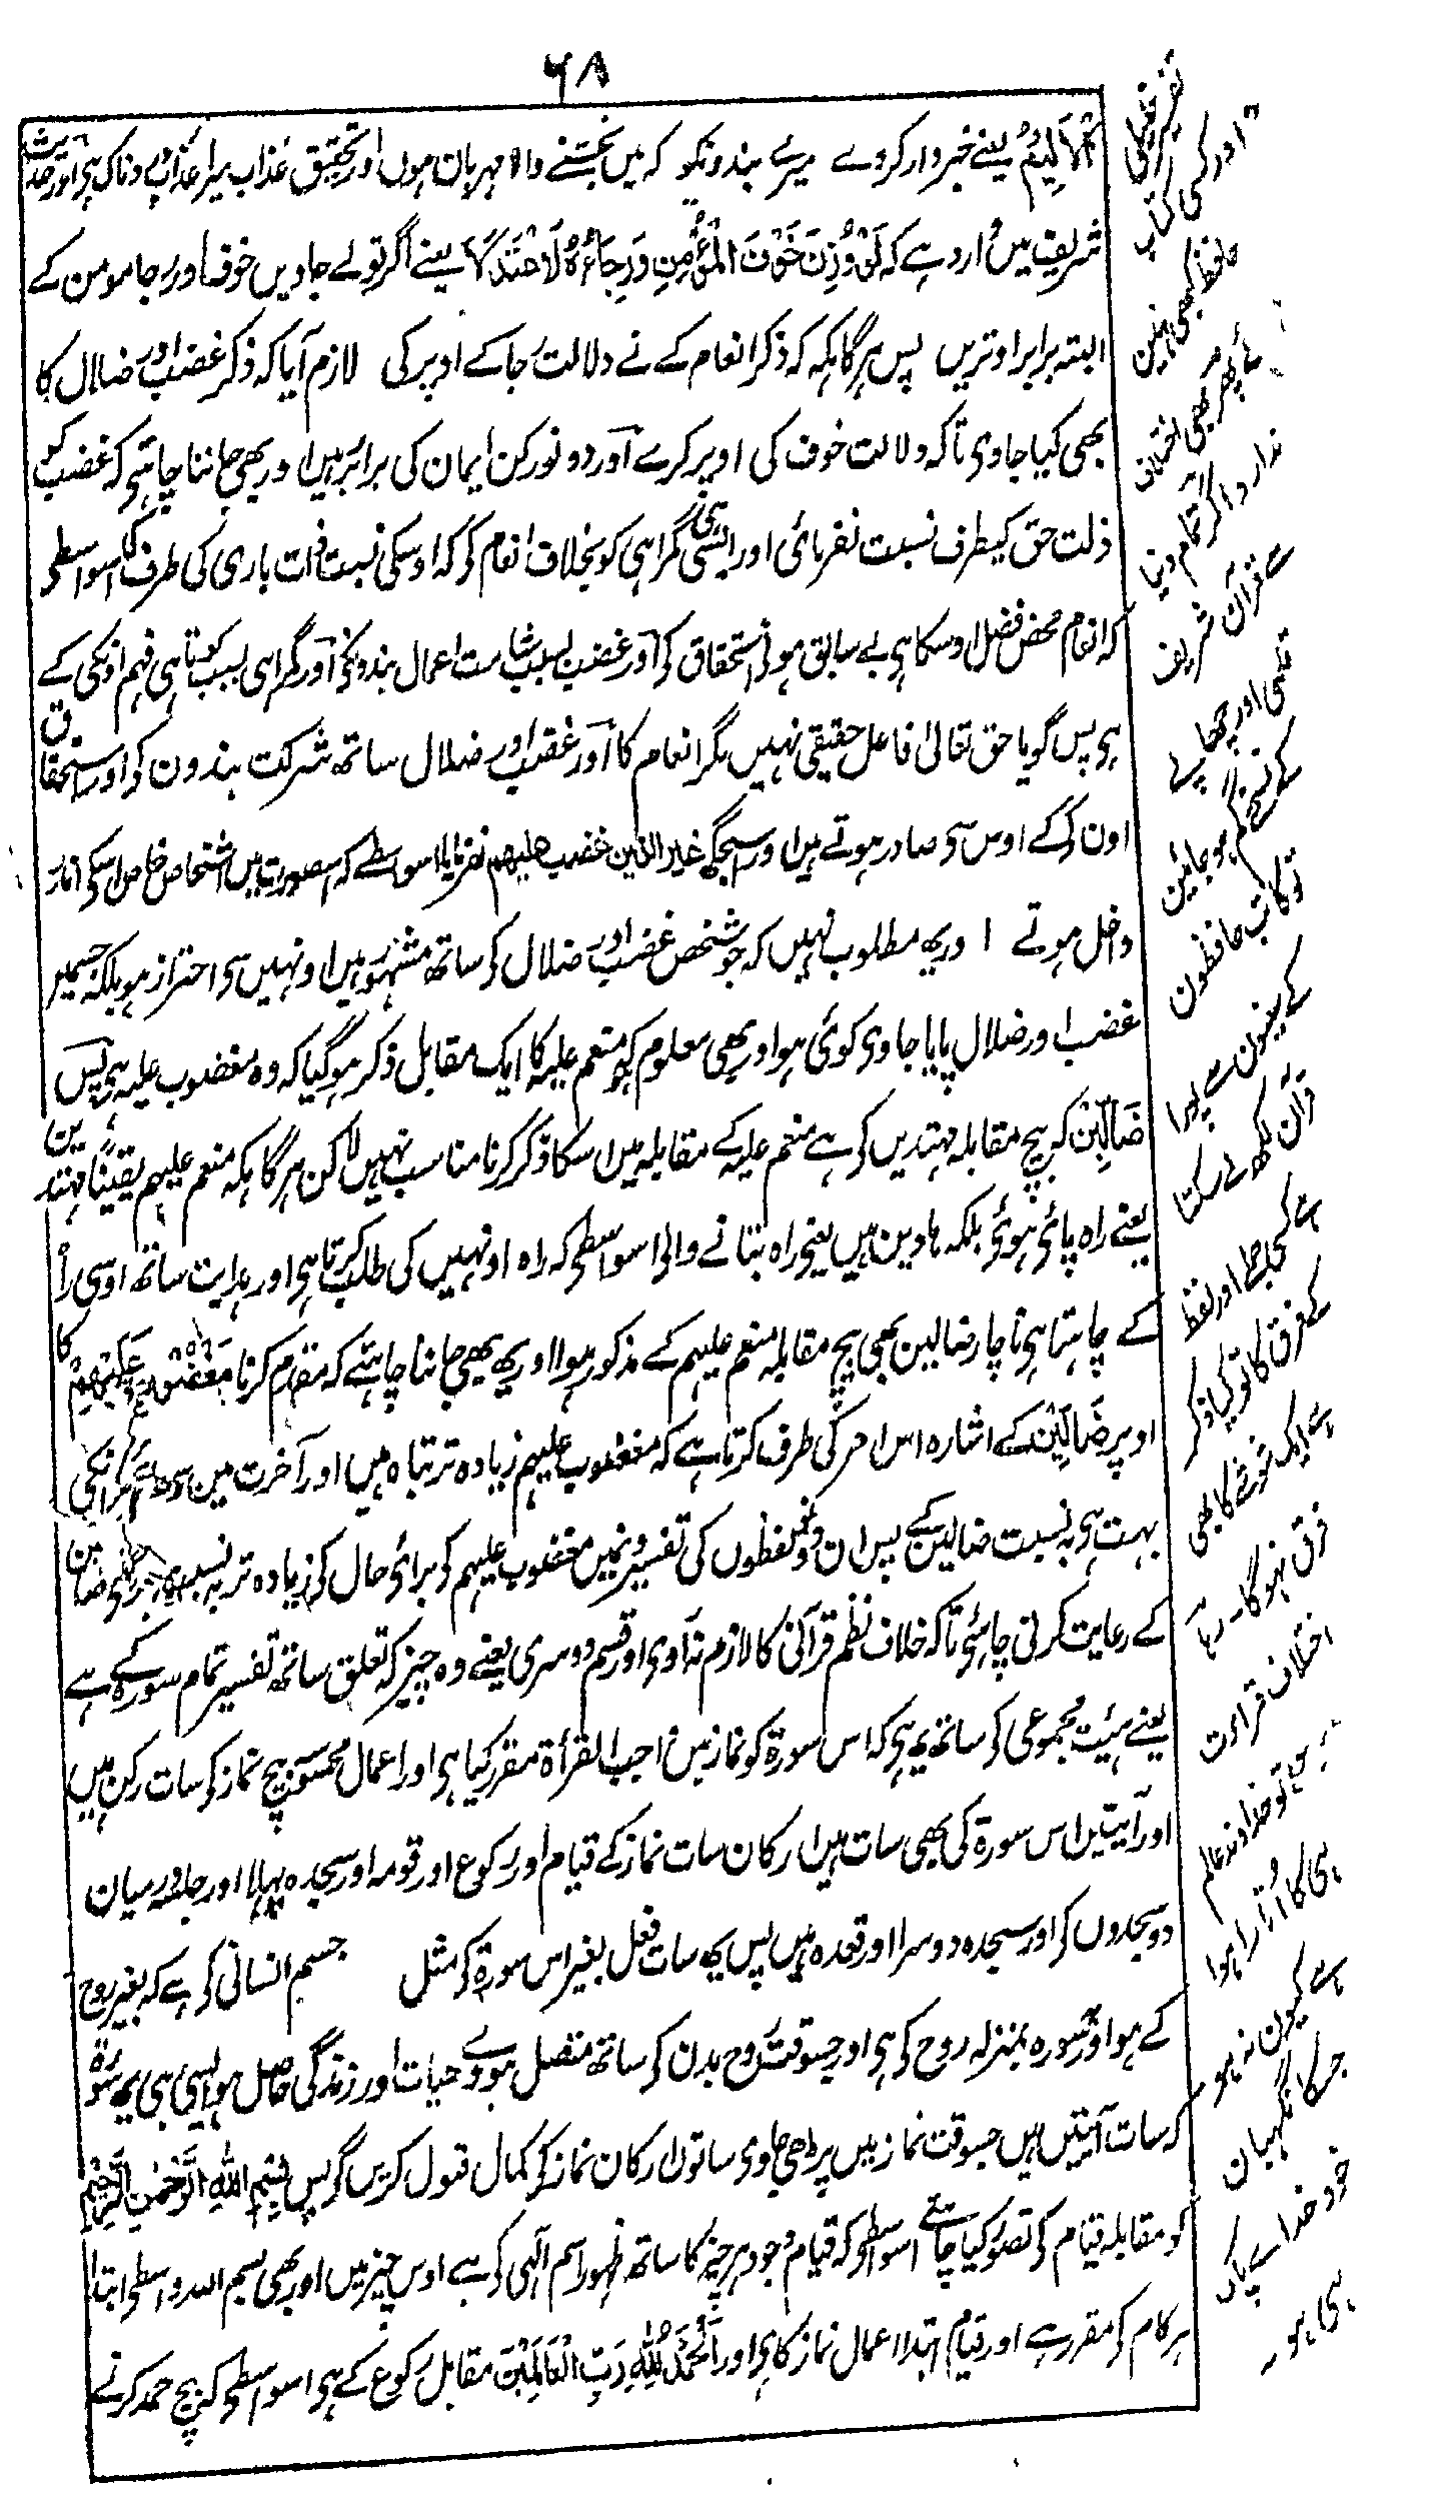 ۶۸
الْاَلِيْمُ یعنے خبردار کردے میرے بندونکو کہ میں بخشنے والا مہربان ہوں اور تحقیق عذاب میرا عذاب دردناک ہی اور حدیث
شریف میں وارد ہے کہ لَوْ وُزِنَ خَوْفَ الْمُؤْمِنِ وَرِجَاءُهٗ لَاعْتَدَلَا یعنے اگر تولے جاویں خوف اور رجا مومن کے
البتہ برابر اوتریں پس ہرگاہ کہ ذکر انعام کے نے دلالت رجا کے اوپر کی لازم آیا کہ ذکر غضب اور ضلال کا
بھی کیا جاوی تاکہ دلالت خوف کی اوپر کرے اور دونو رکن ایمان کی برابر ہیں اور یھ بھی جاننا چاہئی کہ غضب کو
ذات حق کیطرف نسبت نفرمائی اور ایسی ہی گمراہی کو بخلاف انعام کی کہ اوسکی نسبت ذات باری کی طرف کی اسواسطی
کہ انعام محض فضل اوسکا ہی بے سابق ہونی استحقاق کی اور غضب بسبب شامت اعمال بندونکی اور گمراہی بسبب کوتاہی فہم اونکی کے
ہی پس گویا حق تعالیٰ فاعل حقیقی نہیں مگر انعام کا اور غضب اور ضلال ساتھ شرکت بندون کی اور استحقاق
اون کی کے اوس سی صادر ہوتے ہیں اور اسجگہ غیر الذین غضب علیہم نفرمایا اسواسطے کہ اسصورت میں اشخاص خاص اسکی
داخل ہوتے اور یھ مطلوب نہیں کہ جو شخص غضب اور ضلال کی ساتھ مشہور ہیں اونہیں سی احتراز ہو بلکہ جسمیں
غضب اور ضلال پایا جاوی کوئی ہو اور یھ بھی معلوم کہ منعم علیہ کا ایک مقابل ذکر ہوگیا کہ وہ مغضوب علیہ ہی پس
ضَالِّيْنَ کہ بیچ مقابلہ مہتدیں کی ہے منعم علیہ کے مقابلہ میں اسکا ذکر کرنا مناسب نہیں لاکن ہرگاہ کہ منعم علیہم یقیناً مہتدین
یعنے راہ پائی ہوئی بلکہ ہادین ہیں یعنی راہ بتانے والی اسواسطی کہ راہ اونہیں کی طلب کرتا ہی اور ہدایت ساتھ اوسی راہ
کے چاہتا ہی ناچار ضالین بھی بیچ مقابلہ منعم علیہم کے مذکور ہوا اور یھ بھی جاننا چاہئے کہ مقدم کرنا مَغْضُوْبِ عَلَيْهِمْ کا
اوپر ضَالِّيْنَ کے اشارہ اس امر کی طرف کرتا ہے کہ مغضوب علیہم زیادہ تر تباہ ہیں اور آخرت میں
بہت ہی بہ نسبت ضالین کے پس ان دونو لفظوں کی تفسیر میں مغضوب علیہم کو برائی حال کی زیادہ تر بہ نسبت ضالین
کے رعایت کرنی چاہئی تاکہ خلاف نظم قرآنی کا لازم نہ آوی اور قسم دوسری یعنے وہ چیز کہ تعلق ساتھ تفسیر تمام سورہ کے ہے
یعنے ہیئت مجموعی کی ساتھ یھ ہی کہ اس سورۃ کو نماز میں واجب القرأۃ مقرر کیا ہی اور اعمال محسوسہ بیچ نماز کی سات رکن ہیں
اور آیتیں اس سورۃ کی بھی سات ہیں ارکان سات نماز کے قیام اور رکوع اور قومہ اور سجدہ پہلا اور جلسہ درمیان
دو سجدوں کی اور سجدہ دوسرا اور قعدہ ہیں پس یھ سات فعل بغیر اس سورۃ کی مثل جسم انسانی کی ہے کہ بغیر روح
کے ہو اور سورہ بمنزلہ روح کی ہی اور جسوقت روح بدن کی ساتھ متصل ہووے حیات اور زندگی حاصل ہو ایسی ہی یھ سورۃ
کہ سات آیتیں ہیں جسوقت نماز میں پڑھی جاوی ساتوں ارکان نماز کی کمال قبول کریں گی پس بِسْمِ اللّٰهِ الرَّحْمٰنِ الرَّحِيْمِ
کو مقابلہ قیام کی تصور کیا چاہئے اسواسطی کہ قیام وجود ہر چیز کا ساتھ ظہور اسم الٰہی کی ہے اوس چیز میں اور بھی بسم اللہ واسطی ابتدا
ہر کام کی مقرر ہے اور قیام ابتدا اعمال نماز کا ہی اور اَلْحَمْدُ لِلّٰهِ رَبِّ الْعَالَمِيْنَ مقابل رکوع کے ہی اسواسطی کہ بیچ حمد کرنے
اور کسی کتاب
حافظ بھی نہیں
پھر بھی
اگر تمام دنیا
سے قرآن شریف
قلمی اور چھاپے
کے نسخے گم ہو جائیں
تو کتاب حافظون
کے سینون سے پورا
قرآن لکھ سکتا
ہے کسی جملے اور لفظ
کے فرق کا تو کیا ذکر
ہے ایک شوشے کا بھی
فرق نہوگا۔ رہا
اختلاف قرأت
تو خداوند عالم
ہی کا اتارا ہوا
ہے کیون نہ ہو
جسکا نگہبان
خود خداے پاک
ہی ہو ۔